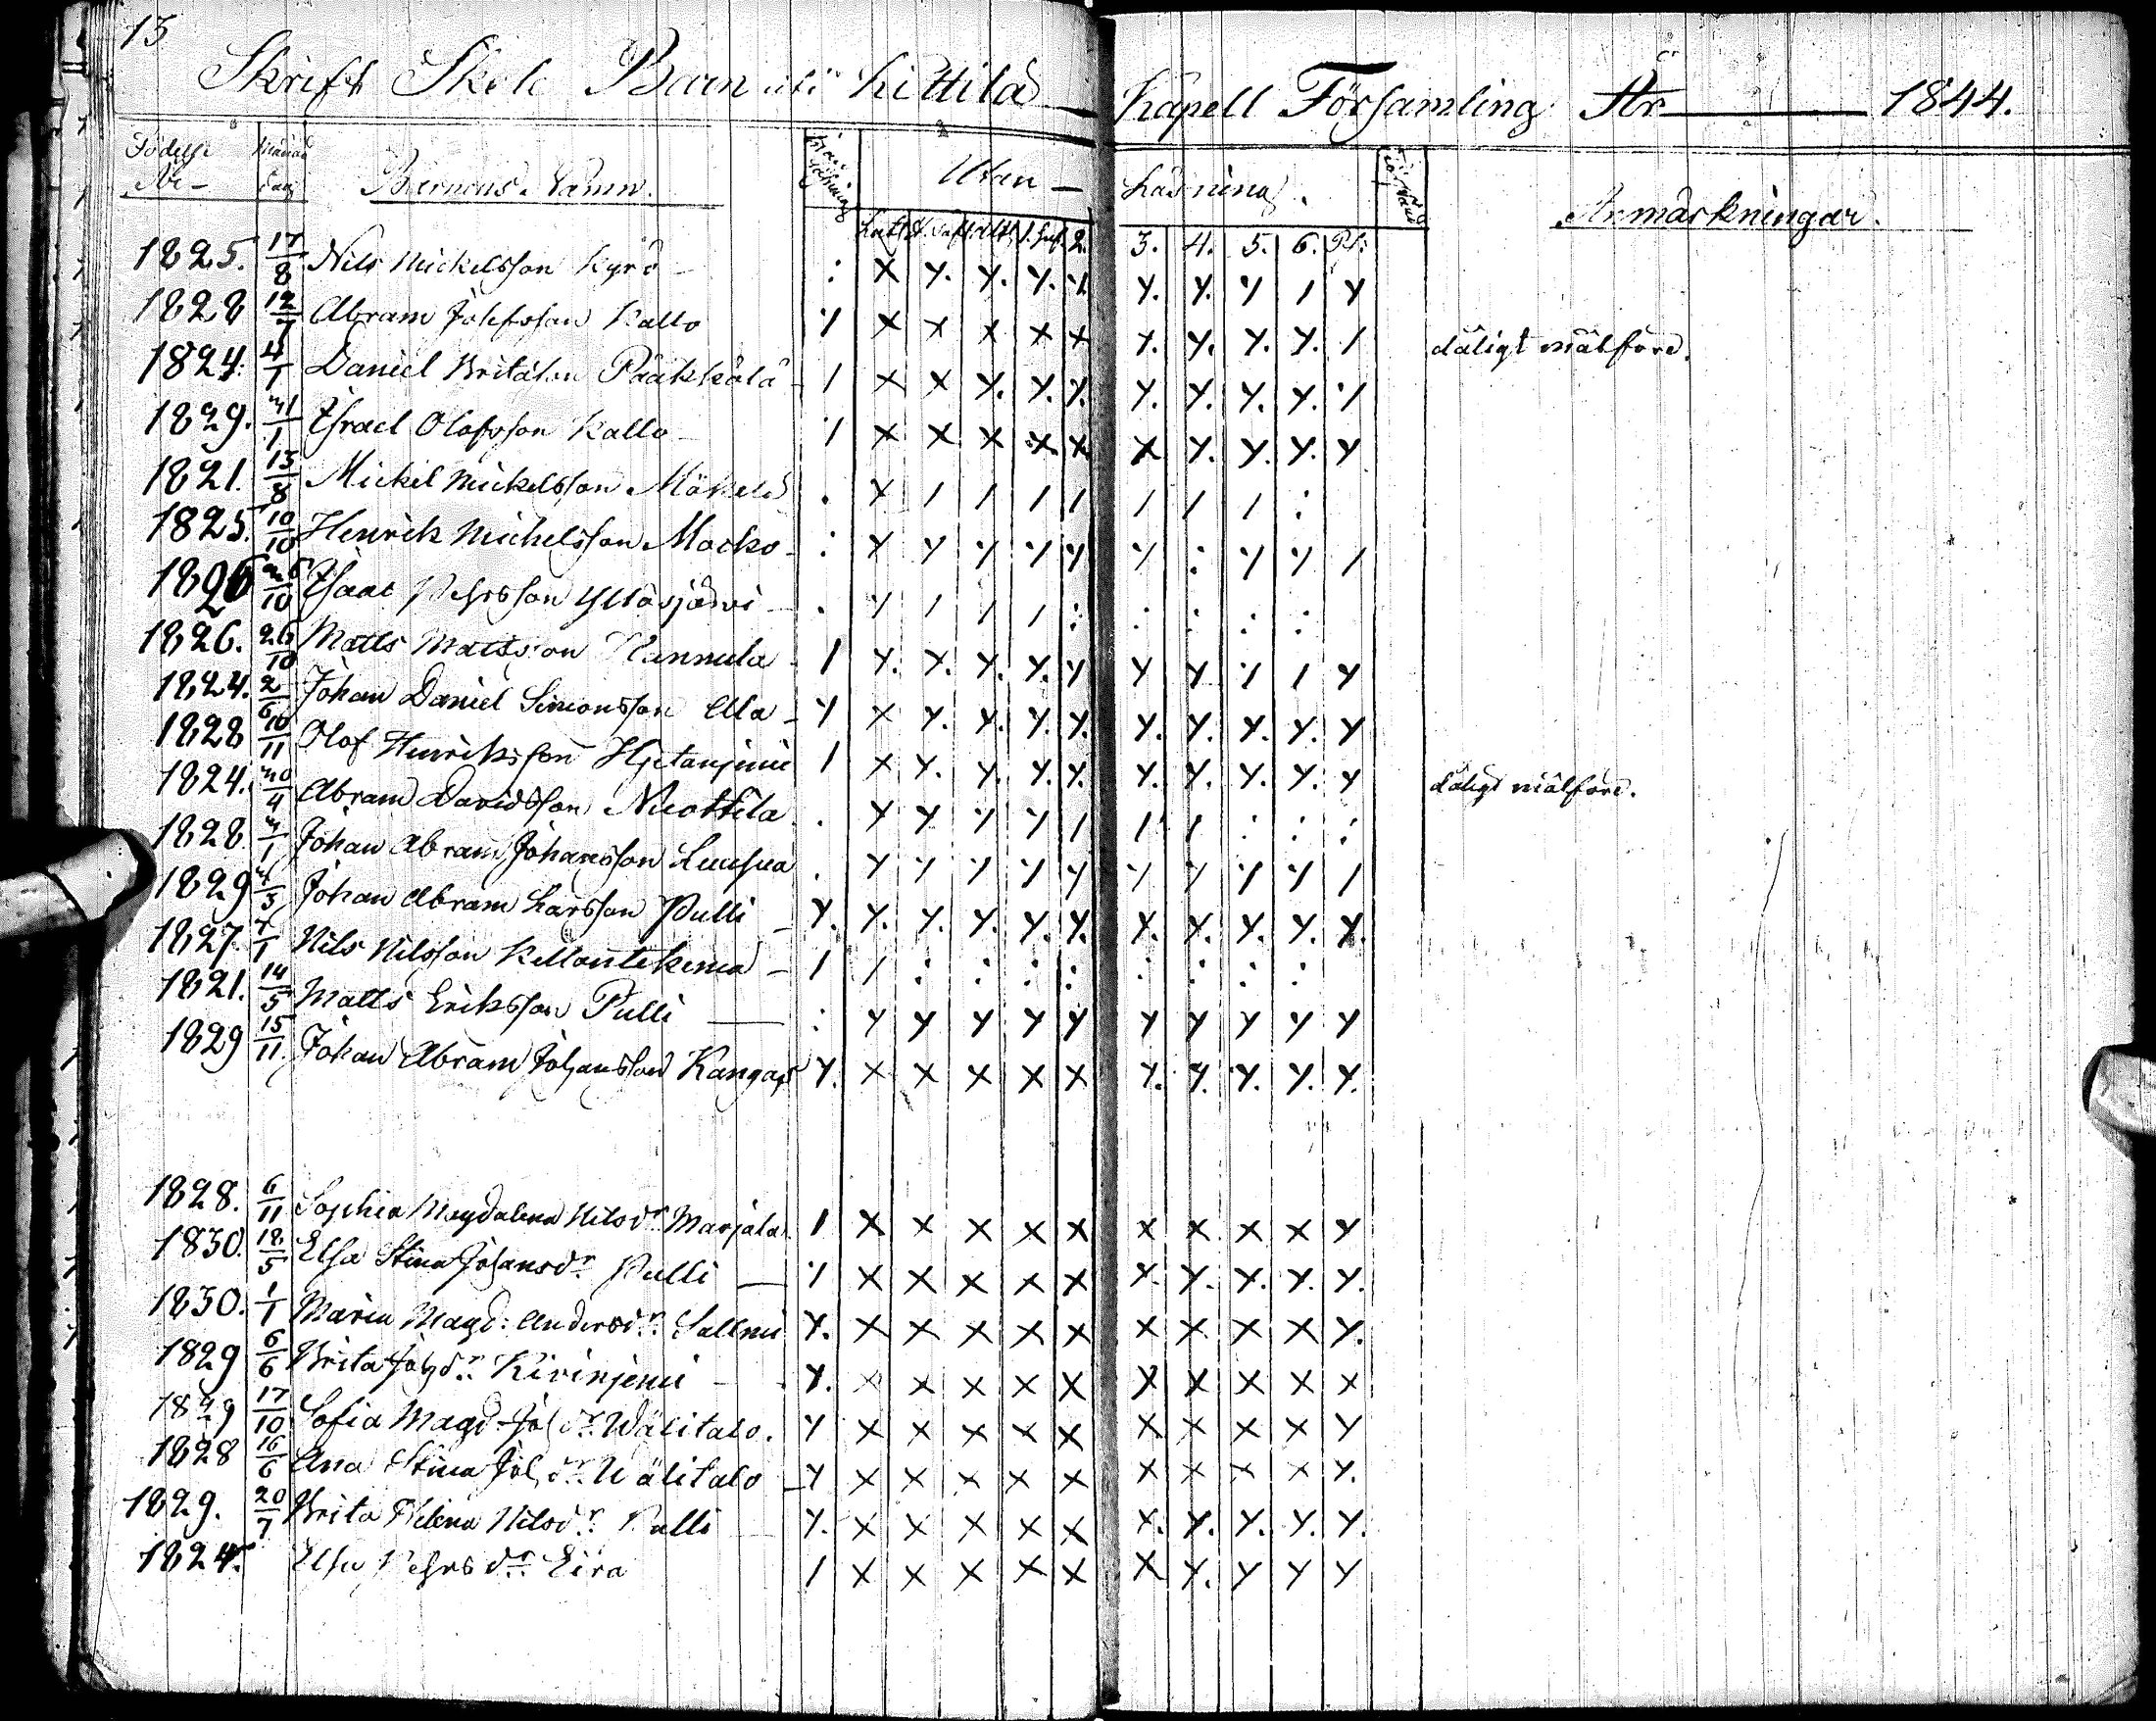 13
Skrift Skole Barn uti Kittilä Kapell Församling År 1844.
Födelse År Månad Dag Barnens Namn. Utan Läsning. Anmärkningar.
3. 4. 5. 6.
1825. 17/8 Nils Mickelsson Kyrö : X Y. Y. Y. Y Y. Y. Y / Y
1828 12/7 Abram Josefsson Kallo Y X X X X X Y. Y. Y. Y. / dåligt målföre.
1824. 4/1 Daniel Britason Pääkkölä / X X Y. Y. Y. Y. Y. Y. Y. Y
1829. 21/1 Israel Olofsson Kallo Y X X X X. X X Y. Y. Y. Y
1821. 13/8 Mickel Mickelsson Mäkelä . X / / / / / / / :
1825. 10/10 Henrik Michelsson Mocko : Y Y Y Y Y Y : Y Y /
1826 26/10 Isaac Pehrsson Ylläsjärvi . Y / / / : : : : :
1826. 26/10 Matts Mattsson Nunnula / Y. Y. Y. Y. Y Y Y Y / Y
1824. 2/6 Johan Daniel Simonsson Ala Y X Y. Y. Y. Y. Y. Y. Y. Y. Y
1828 10/11 Olof Henriksson Hjetanjemi / X Y. Y. Y. Y. Y. Y. Y. Y. Y dåligt målföre.
1824. 20/4 Abram Davidsson Nuottila . Y Y Y Y / / / : : :
1828. 2/1 Johan Abram Johansson Luusua . Y Y Y Y Y Y Y Y Y /
1829 4/3 Johan Abram Larsson Pulli Y. Y. Y. Y. Y. Y. Y. Y. Y. Y. Y.
1827. 7/1 Nils Nilsson Kellontekemä / / : : : : : : : :
1821. 14/5 Matts Eriksson Pulli : Y Y Y Y Y Y Y Y Y Y
1829 15/11. Johan Abram Johansson Kangas Y. X X X X X Y. Y. Y. Y. Y.
1828. 6/11 Sophia Magdalena Nilsdr. Marjala / X X X X X X X X X Y
1830. 18/5 Elsa Stina Johansdr. Pulli Y X X X X X Y. Y. Y. Y. Y.
1830. 1/1 Maria Magd: Andersdr. Salmi Y. X X X X X X X X X Y.
1829 6/6 Brita Johdr. Kivinjemi Y. X X X X X X X X X X
1829 17/10 Sofia Magd. Johdr. Wälitalo. Y X X X X X X X X X Y
1828 16/6 Ana Stina Johdr. Wälitalo Y X X X X X X X X X Y.
1829. 20/7 Brita Helena Nilsdr. Pulli Y. X X X X X X. Y. Y. Y. Y.
1824. Elsa Pehrsdr. Eira / X X X X X X Y. Y Y Y